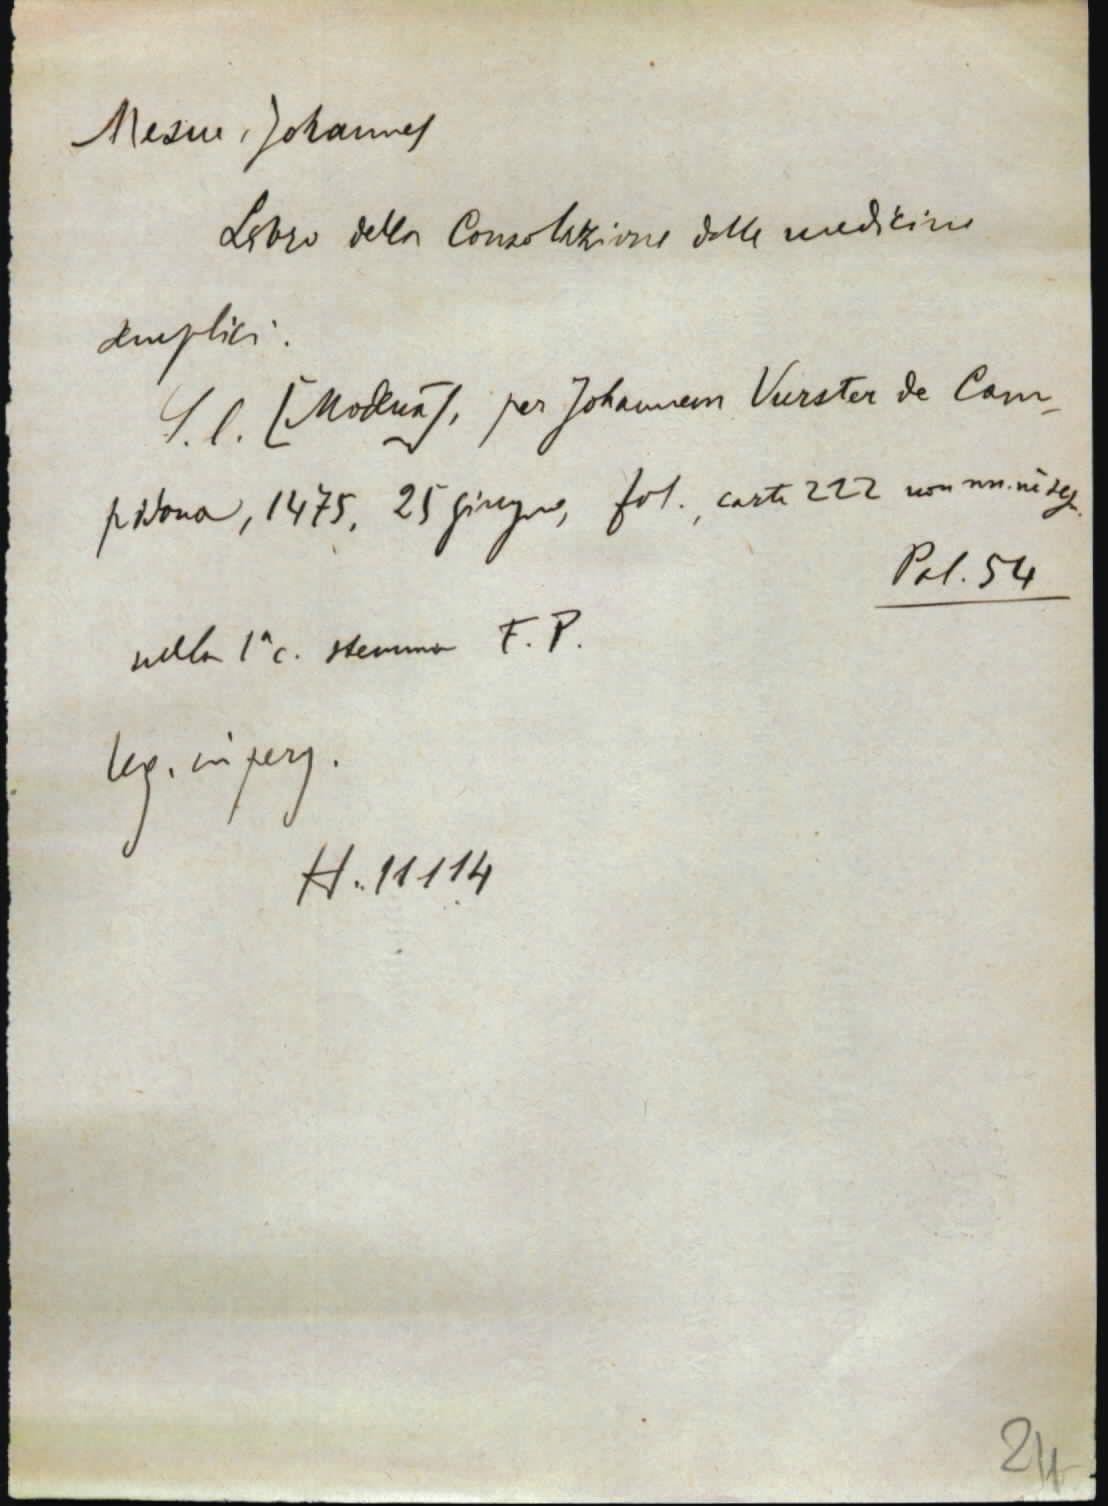 Mesue, Johannes
Libro della Consolazione delle medicine
semplici.
S. l. [Modena], per Johannem Vurster de Cam-
pidona, 1475, 25 giugno, fol., carte 222 non nn. nè seg.
Pal. 54
nella 1ª c. stemma F. P.
leg. in perg.
H. 11114
24